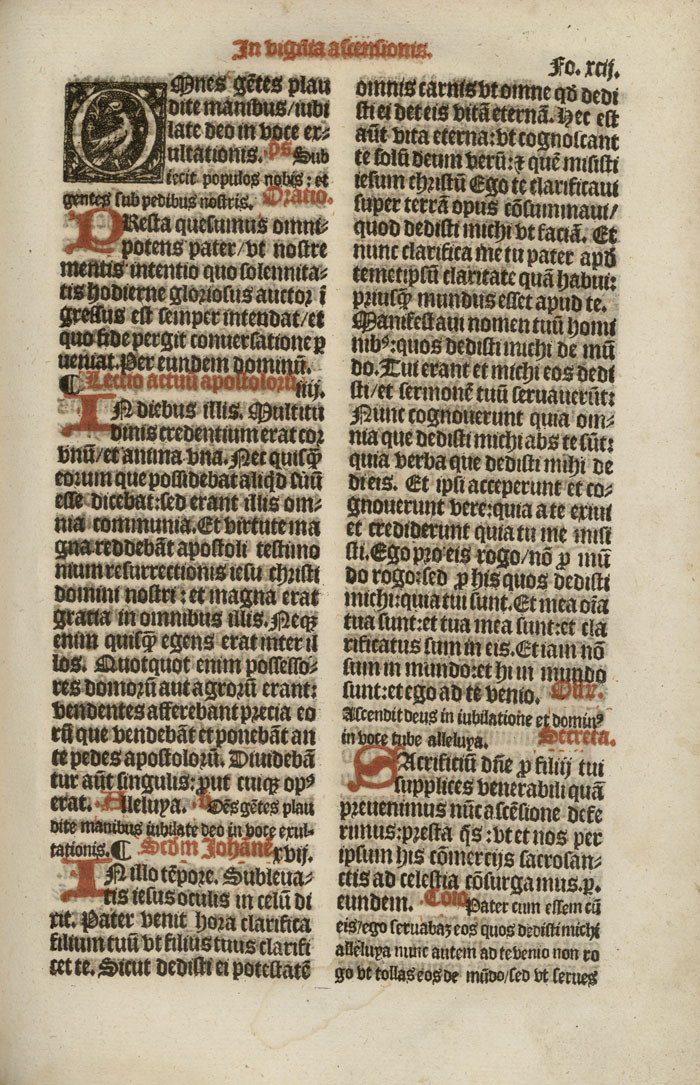 In vigilia ascensionis.
Fo. xcij.
OMnes gẽtes plau
dite manibus/iubi
late deo in voce ex⸗
ultationis. ps Sub
iecit populos nobis: et
gentes sub pedibus nostris. Oratio.
PResta quesumus omni⸗
potens pater/vt nostre
mentis intentio quo solennita⸗
tis hodierne gloriosus auctor ĩ
gressus est semper intendat/et
quo fide pergit conversatione ꝑ
ueniat. Per eundem dominũ.
¶ Lectio actuũ apostolorũ iiij.
IN diebus illis. Multitu
dinis credentium erat cor
vnũ/et anima vna. Nec quisꝙ̃
eorum que possidebat aliqd suũ
esse dicebat: sed erant illis om⸗
nia communia. Et virtute ma
gna reddebãt apostoli testimo
nium resurrectionis iesu christi
domini nostri: et magna erat
gratia in omnibus illis. Neqꝫ
enim quisꝙ̃ egens erat inter il
los. Quotquot enim possesso⸗
res domorũ aut agrorũ erant:
vendentes afferebant precia eo
rũ que vendebãt et ponebãt an
te pedes apostolorũ. Diuidebã
tur aũt singulis: ꝓut cuiqꝫ opꝰ
erat. Alleluya. v Oẽs gẽtes plau
dite manibus iubilate deo in voce exul⸗
tationis. ¶ Scdm Johanẽ xvij.
IN illo tẽpore. Subleua⸗
tis iesus oculis in celũ di
xit. Pater venit hora clarifica
filium tuũ vt filius tuus clarifi
cet te. Sicut dedisti ei potestatẽ
omnis carnis vt omne qd̃ dedi
sti ei det eis vitã eternã. Hec est
aũt vita eterna: vt cognoscant
te solũ deum verũ: ⁊ quẽ misisti
iesum christũ Ego te clarificaui
super terrã opus cõsummaui/
quod dedisti michi vt faciã. Et
nunc clarifica me tu pater apd̃
temetipsũ claritate quã habui:
priusꝙ̃ mundus esset apud te.
Manifestaui nomen tuũ homi
nibꝰ: quos dedisti michi de mũ
do. Tui erant et michi eos dedi
sti/et sermonẽ tuũ seruauerũt:
Nunc cognouerunt quia om⸗
nia que dedisti michi abs te sũt:
quia verba que dedisti mihi de
di eis. Et ipsi acceperunt et co⸗
gnouerunt vere: quia a te exiui
et crediderunt quia tu me misi
sti. Ego pro eis rogo/nõ ꝓ mũ
do rogo: sed ꝓ his quos dedisti
michi: quia tui sunt. Et mea oĩa
tua sunt: et tua mea sunt: et cla
rificatus sum in eis. Et iam nõ
sum in mundo: et hi in mundo
sunt: et ego ad te venio. Off.
Ascendit deus in iubilatione et dominꝰ
in voce tube alleluya. Secreta.
SAcrificiũ dñe ꝓ filij tui
supplices venerabili quã
preuenimus nũc ascẽsione defe
rimus: presta qs̃: vt et nos per
ipsum his cõmercijs sacrosan⸗
ctis ad celestia cõsurgamus. ꝑ.
eundem. Cõio Pater cum essem cũ
eis/ego seruabaꝫ eos quos dedisti michi
alleluya nunc autem ad te venio non ro
go vt tollas eos de mũdo/sed vt serues